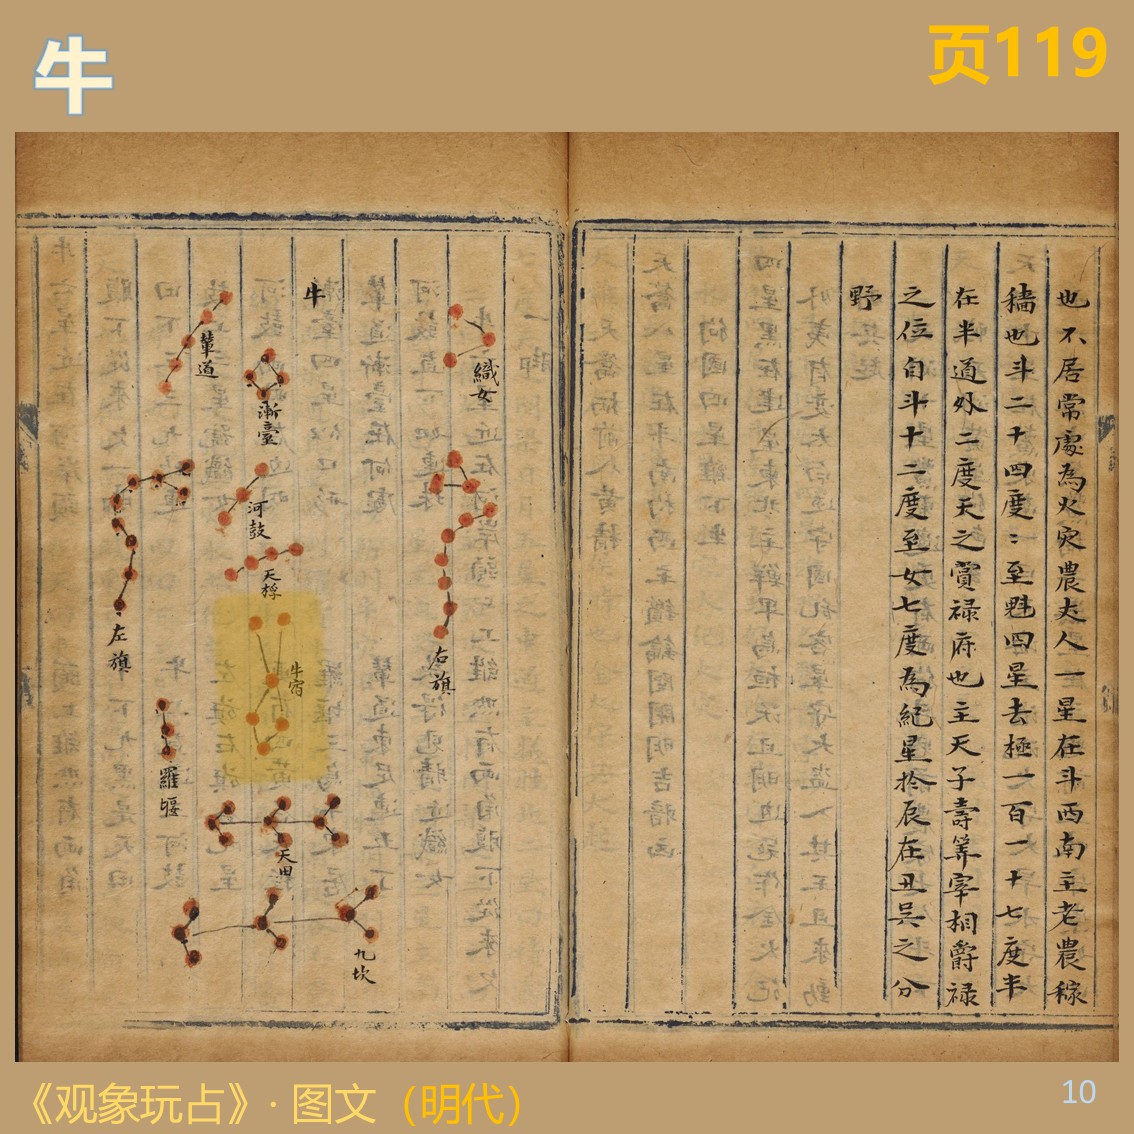 牛
页119
也不居常處為火灾農丈人一星在斗西南主老農稼
穡也斗二十四度：至魁四星去極一百一十七度半
在半道外二度天之賞禄府也主天子壽筭宰相爵禄
之位自斗十二度至女七度為紀星扵辰在丑吳之分
野
牛
織女
輦道
漸臺
河鼓
天桴
右旗
左旗
牛宿
羅堰
天田
九坎
《观象玩占》· 图文（明代）
10